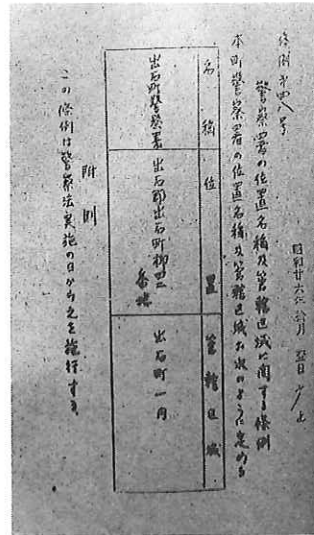 條例第四八号
警察署の位置名稱及管轄区域に関する條例
本町警察署の位置名稱及管轄区域を次のように定める
名稱 位置 管轄区域
出石町警察署 出石郡出石町柳 番地 出石町一円
附則
この條例は警察法実施の日から之を施行する